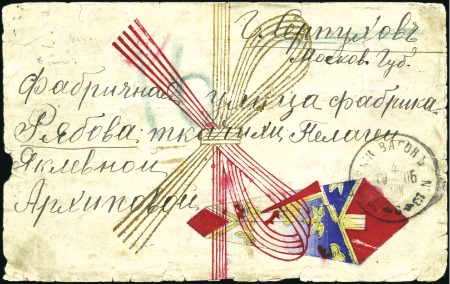 г. Серпуховъ
Москов. Губ.
Фабричная улица фабрика
Рябова ткачихи Пелагеи
Яклевной
Архиповой
ВАГОНЪ